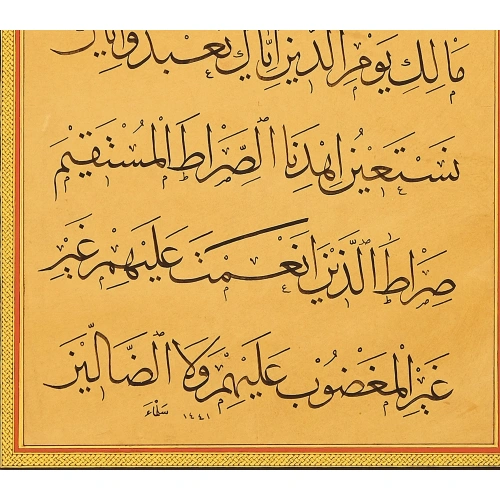 مَالِكِ يَوْمِ الدِّينِ إِيَّاكَ نَعْبُدُ وَإِيَّاكَ
نَسْتَعِينُ اِهْدِنَا الصِّرَاطَ الْمُسْتَقِيمَ
صِرَاطَ الَّذِينَ اَنْعَمْتَ عَلَيْهِمْ غَيْرِ
غَيْرِ الْمَغْضُوبِ عَلَيْهِمْ وَلَا الضَّالِّينَ
١٤٤١